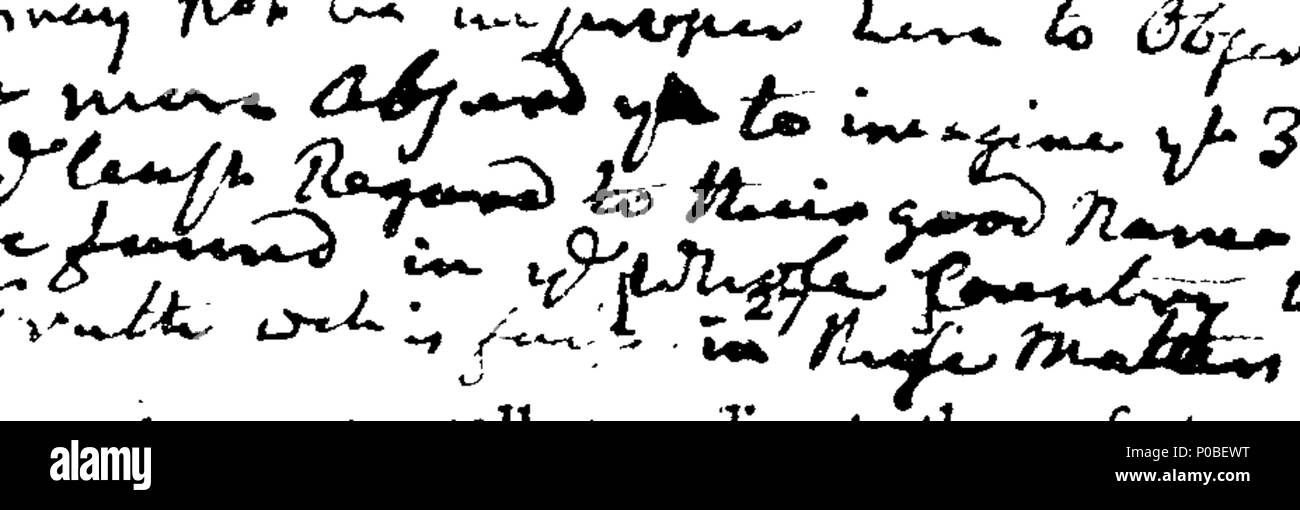 may not be improper here to Obser
more Absurd yn to imagine yt 3
least Regard to their good Names
found in ye whole Country
Truth wch is in these Matters
27
alamy
alamy
Image ID: P0BEWT
www.alamy.com